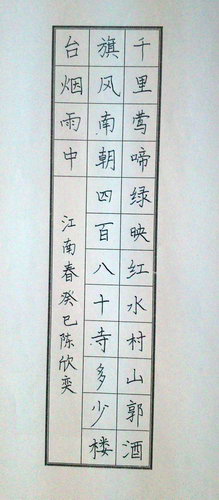 千里莺啼绿映红水村山郭酒
旗风南朝四百八十寺多少楼
台烟雨中
江南春癸巳陈欣奕